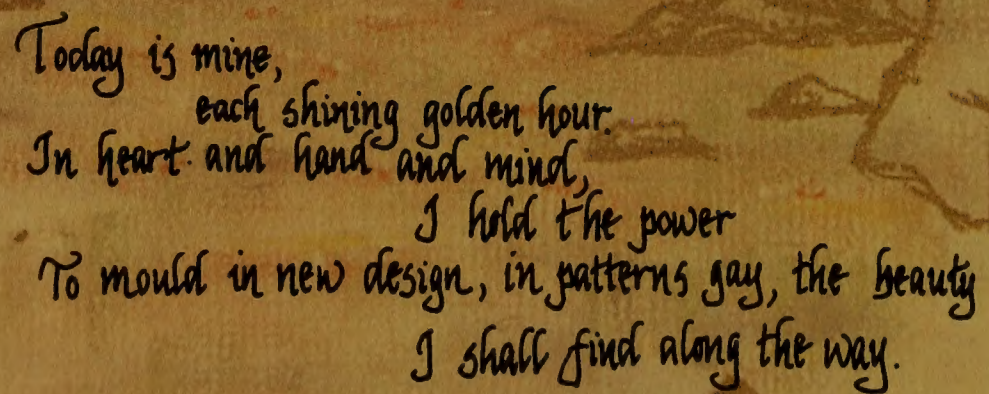 Today is mine,
each shining golden hour.
In heart and hand and mind,
I hold the power
To mould in new design, in patterns gay, the beauty
I shall find along the way.